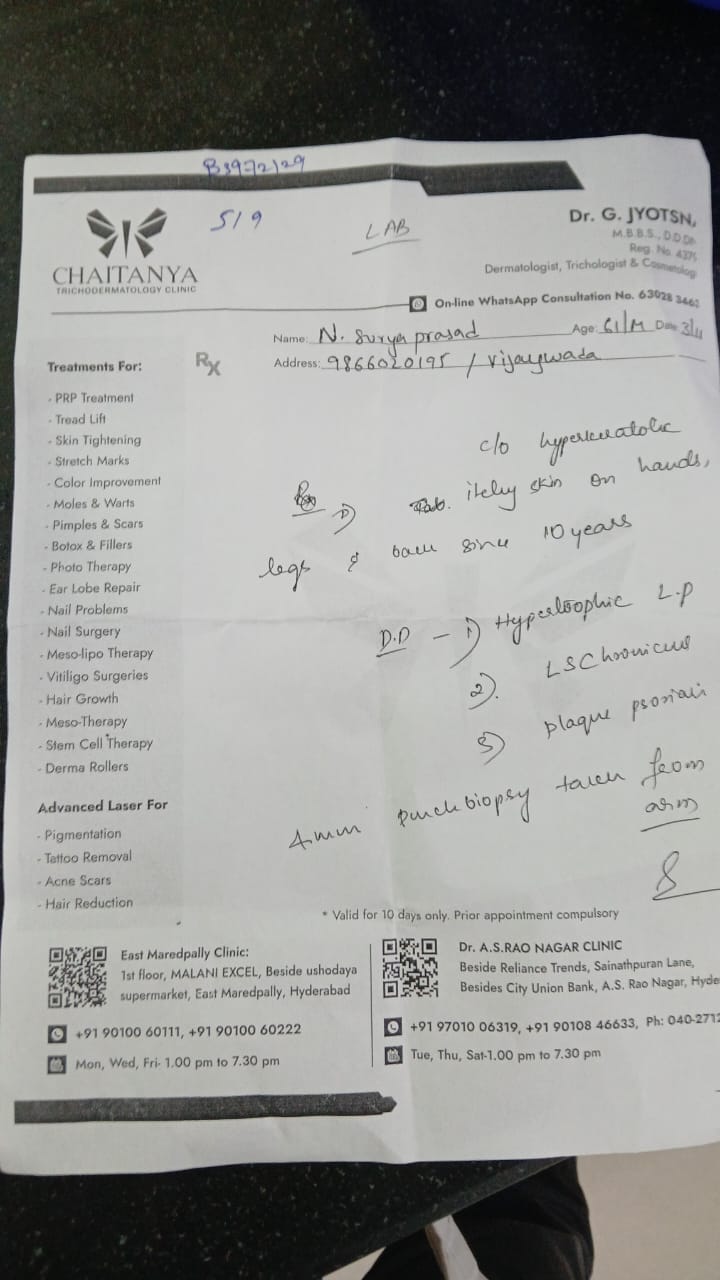 B3972/29
S/9
LAB
CHAITANYA
TRICHODERMATOLOGY CLINIC
Dr. G. JYOTSN,
M.B.B.S., D.D.
Reg. No. 437
Dermatologist, Trichologist & Cosmetolog
On-line WhatsApp Consultation No. 63028 346
Name: N. Surya prasad Age: 61/M Date 3/11
Address: 9866020195 / Vijaywada
Rx
Treatments For:
- PRP Treatment
- Tread Lift
- Skin Tightening
- Stretch Marks
- Color Improvement
- Moles & Warts
- Pimples & Scars
- Botox & Fillers
- Photo Therapy
- Ear Lobe Repair
- Nail Problems
- Nail Surgery
- Meso-lipo Therapy
- Vitiligo Surgeries
- Hair Growth
- Meso-Therapy
- Stem Cell Therapy
- Derma Rollers
Advanced Laser For
- Pigmentation
- Tattoo Removal
- Acne Scars
- Hair Reduction
c/o hyperkeratotic
1) itchy skin on hands,
legs & back since 10 years
D.D - 1) Hypertrophic L.P
2). LSChronicus
3) plaque psoriasi
4mm punch biopsy taken from
arm
* Valid for 10 days only. Prior appointment compulsory
East Maredpally Clinic:
1st floor, MALANI EXCEL, Beside ushodaya
supermarket, East Maredpally, Hyderabad
+91 90100 60111, +91 90100 60222
Mon, Wed, Fri- 1.00 pm to 7.30 pm
Dr. A.S.RAO NAGAR CLINIC
Beside Reliance Trends, Sainathpuran Lane,
Besides City Union Bank, A.S. Rao Nagar, Hyde
+91 97010 06319, +91 90108 46633, Ph: 040-2712
Tue, Thu, Sat-1.00 pm to 7.30 pm